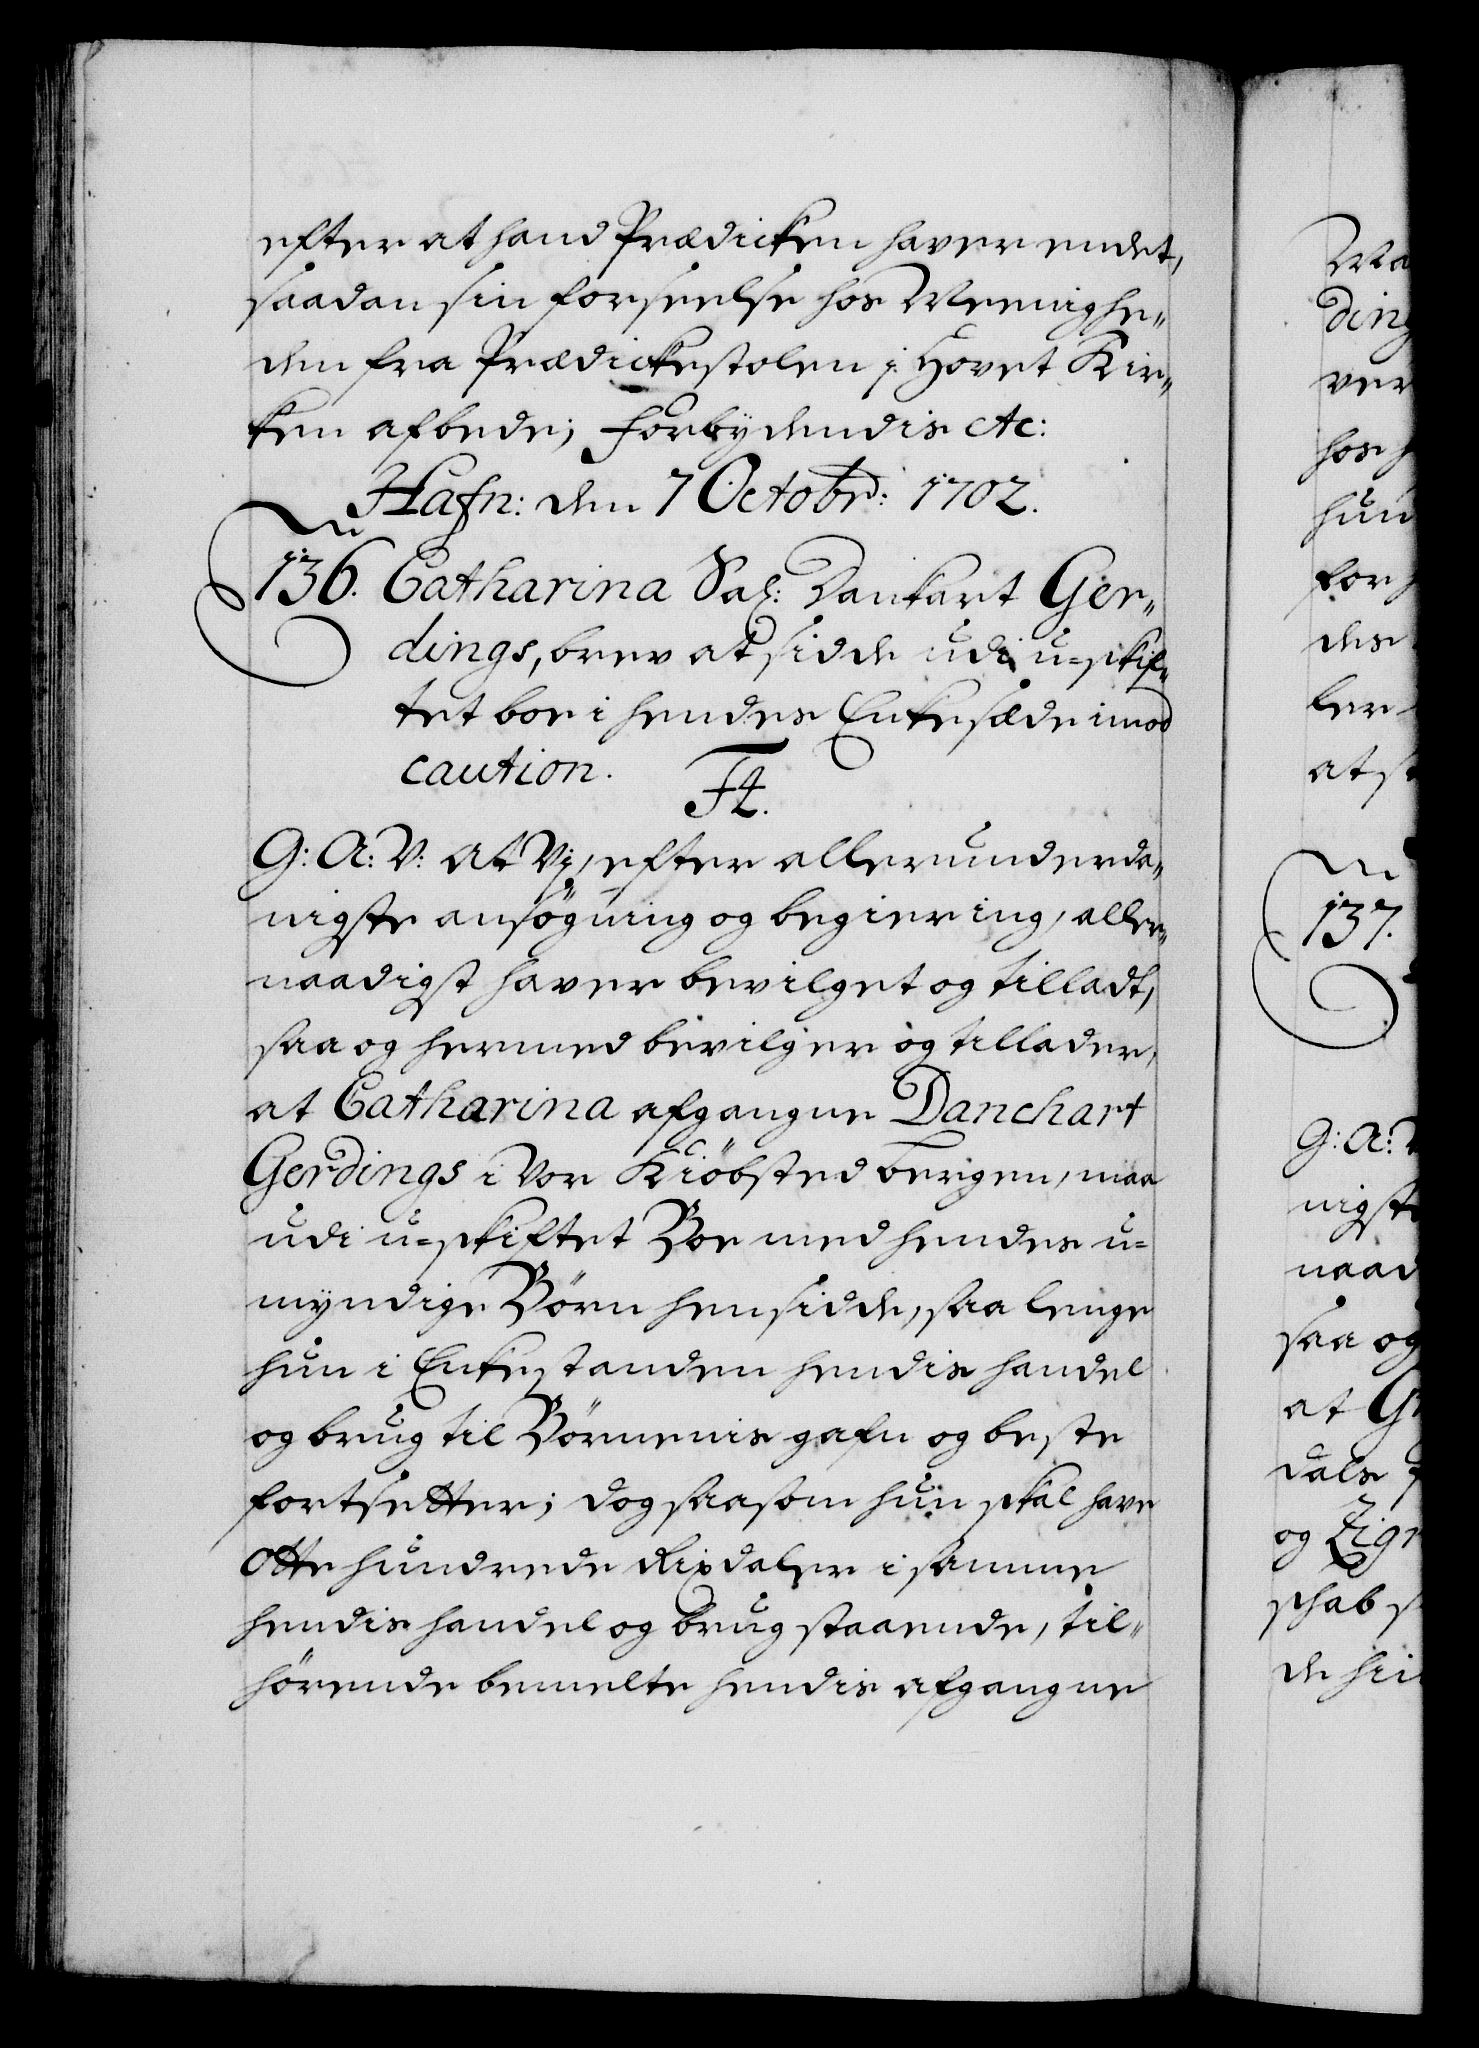 efter at hand Prædicken haver endet,
saadan sin forseelse hos Meenighe„
den fra Prædickestolen i Hovet Kir„
ken afbede; Forbydendis etc:
Hafn: den 7 Octobr: 1702.
136. Catharina Sal: Dankart Ger„
dings, brev at sidde udi u=skif„
tet boe i hendes Enkesæde imod
caution.
F4.
G: A: V: at Vi, efter allerunderda„
nigste ansøgning og begiering, aller„
naadigst haver bevilget og tilladt,
saa og hermed bevilger og tillader,
at Catharina afgangne Danchart
Gerdings i Vor Kiöbsted Bergen, maa
udi u=skiftet Boe med hendes u=
myndige Börn hensidde, saa lenge
hun i Enkestanden hendis handel
og brug til Börnenis gafn og beste
fortsetter; dog saasom hun skal have
Otte hundrede Rixdaler i samme
hendis handel og brug staaende, til„
hörende bemelte hendis afgangne
Ma
ding
ver
hos
hun
for
des
ler
at
137.
G: A:
nigst
naad
saa og
at
dals
og
schab
de